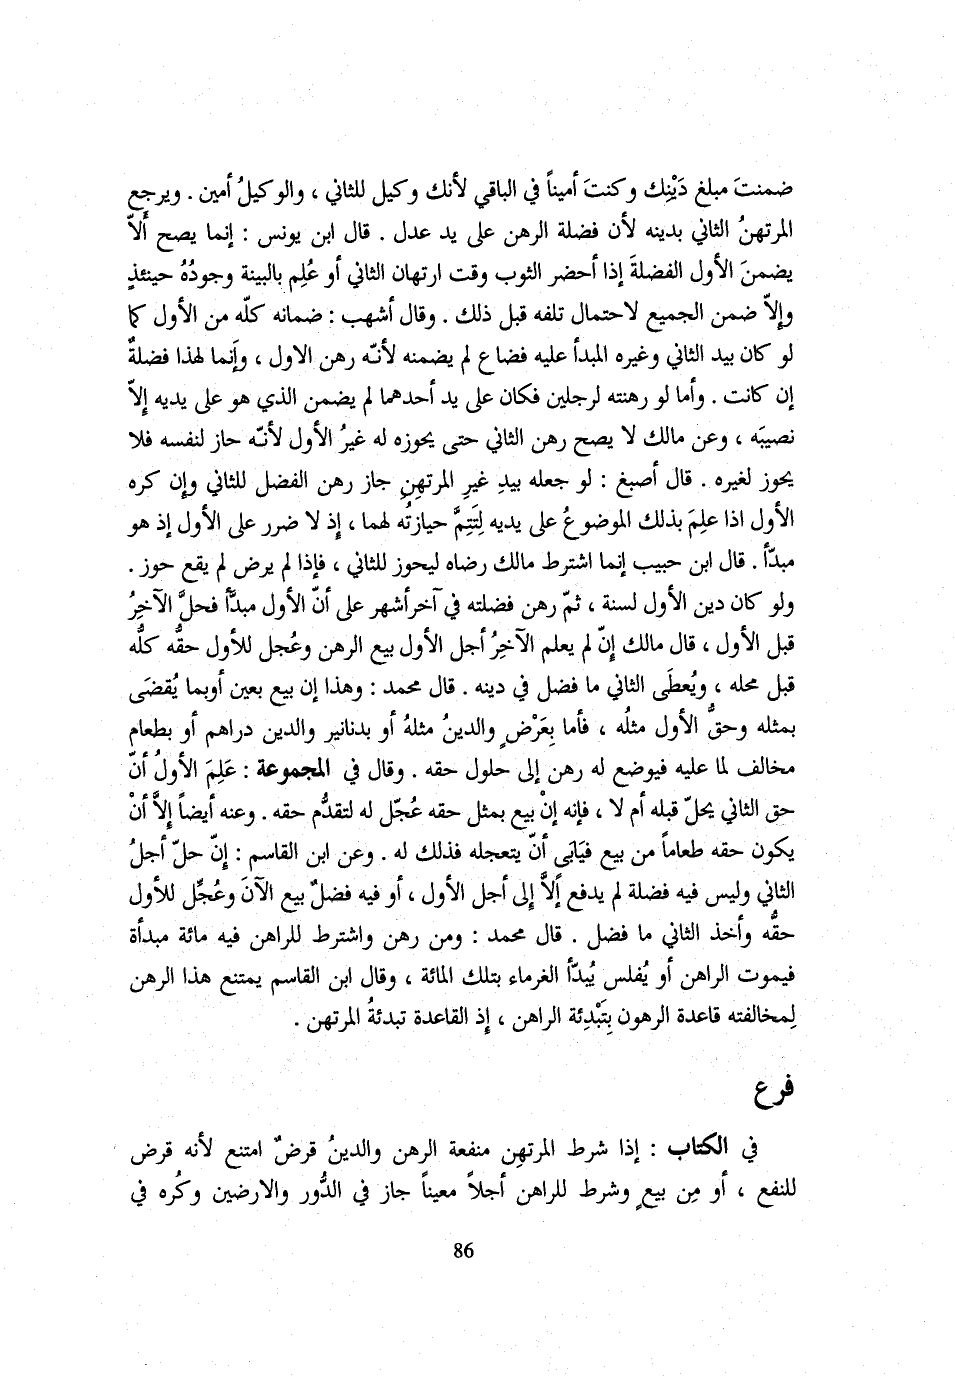 ضمنتَ مبلغ دَيْنِك وكنتَ أميناً في الباقي لأنك وكيل للثاني ، والوكيلُ أمين . ويرجع
المرتهنُ الثاني بدينه لأن فضلة الرهن على يد عدل . قال ابن يونس : إنما يصح ألاّ
يضمنَ الأول الفضلةَ إذا أحضر الثوب وقت ارتهان الثاني أو عُلِم بالبينة وجودُهُ حينئذٍ
وإلاّ ضمن الجميع لاحتمال تلفه قبل ذلك . وقال أشهب : ضمانه كلّه من الأول كما
لو كان بيد الثاني وغيره المبدأ عليه فضاع لم يضمنه لأنّه رهن الاول ، وإنما لهذا فضلةٌ
إن كانت . وأما لو رهنته لرجلين فكان على يد أحدهما لم يضمن الذي هو على يديه إلاّ
نصيبَه ، وعن مالك لا يصح رهن الثاني حتى يحوزه له غيرُ الأول لأنّه حاز لنفسه فلا
يحوز لغيره . قال أصبغ : لو جعله بيدِ غيرِ المرتهِنِ جاز رهن الفضل للثاني وإن كره
الأول اذا علِمَ بذلك الموضوعُ على يديه لِتَتِمَّ حيازتُه لهما ، إذ لا ضرر على الأول إذ هو
مبدّأ . قال ابن حبيب إنما اشترط مالك رضاه ليحوز للثاني ، فإذا لم يرض لم يقع حوز .
ولو كان دين الأول لسنة ، ثمّ رهن فضلته في آخر أشهر على أنّ الأول مبدَّأ فحلَّ الآخِرُ
قبل الأول ، قال مالك إنّ لم يعلم الآخِرُ أجل الأول بيع الرهن وعُجل للأول حقُّه كلُّه
قبل محله ، ويُعطَى الثاني ما فضل في دينه . قال محمد : وهذا إن بيع بعين أوبما يُقضَى
بمثله وحقُّ الأول مثلُه ، فأما بِعَرْضٍ والدينُ مثلهُ أو بدنانير والدين دراهم أو بطعام
مخالف لما عليه فيوضع له رهن إلى حلول حقه . وقال في المجموعة : عَلِمَ الأولُ أنّ
حق الثاني يحلّ قبله أم لا ، فإنه إنْ بيع بمثل حقه عُجّل له لتقدُّم حقه . وعنه أيضاً إلاَّ أنْ
يكون حقه طعاماً من بيع فيَابَى أنّ يتعجله فذلك له . وعن ابن القاسم : إنّ حلّ أجلُ
الثاني وليس فيه فضلة لم يدفع إلاَّ إلى أجل الأول ، أو فيه فضلٌ بيع الآنَ وعُجِّل للأول
حقُّه وأخذ الثاني ما فضل . قال محمد : ومن رهن واشترط للراهن فيه مائة مبدأة
فيموت الراهن أو يُفلس يُبدّأ الغرماء بتلك المائة ، وقال ابن القاسم يمتنع هذا الرهن
لِمخالفته قاعدة الرهون بِتَبْدِئة الراهن ، إذ القاعدة تبدئةُ المرتهن .
فرع
في الكتاب : إذا شرط المرتهِن منفعة الرهن والدينُ قرضٌ امتنع لأنه قرض
للنفع ، أو مِن بيعٍ وشرط للراهن أجلاً معيناً جاز في الدُّور والارضين وكُره في
86